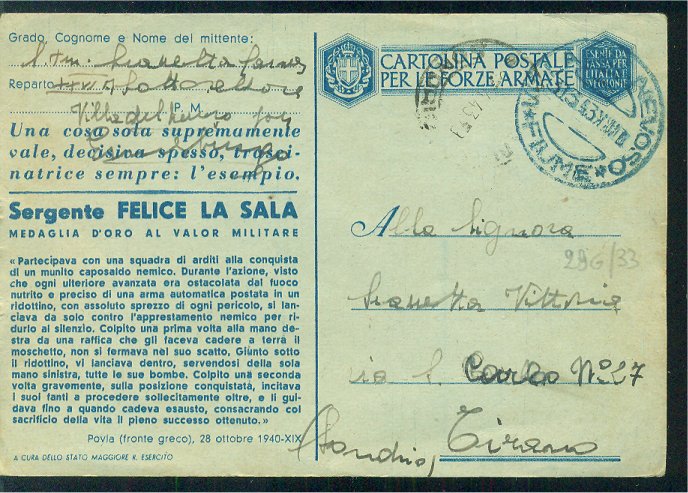 Grado, Cognome e Nome del mittente:
Reparto
P. M.
Villa del
Una cosa sola supremamente
vale, decisiva spesso, trasci-
natrice sempre: l'esempio.
Sergente FELICE LA SALA
MEDAGLIA D'ORO AL VALOR MILITARE
« Partecipava con una squadra di arditi alla conquista
di un munito caposaldo nemico. Durante l'azione, visto
che ogni ulteriore avanzata era ostacolata dal fuoco
nutrito e preciso di una arma automatica postata in un
ridottino, con assoluto sprezzo di ogni pericolo, si lan-
ciava da solo contro l'apprestamento nemico per ri-
durlo al silenzio. Colpito una prima volta alla mano de-
stra da una raffica che gli faceva cadere a terra il
moschetto, non si fermava nel suo scatto. Giunto sotto
il ridottino, vi lanciava dentro, servendosi della sola
mano sinistra, tutte le sue bombe. Colpito una seconda
volta gravemente, sulla posizione conquistata, incitava
i suoi fanti a procedere sollecitamente oltre, e li gui-
dava fino a quando cadeva esausto, consacrando col
sacrificio della vita il pieno successo ottenuto. »
Povla (fronte greco), 28 ottobre 1940-XIX
A CURA DELLO STATO MAGGIORE R. ESERCITO
CARTOLINA POSTALE
PER LE FORZE ARMATE
FIUME
Alla Signora
29G/33
Vittoria
Carlo N° 27
(Sondrio) Tirano